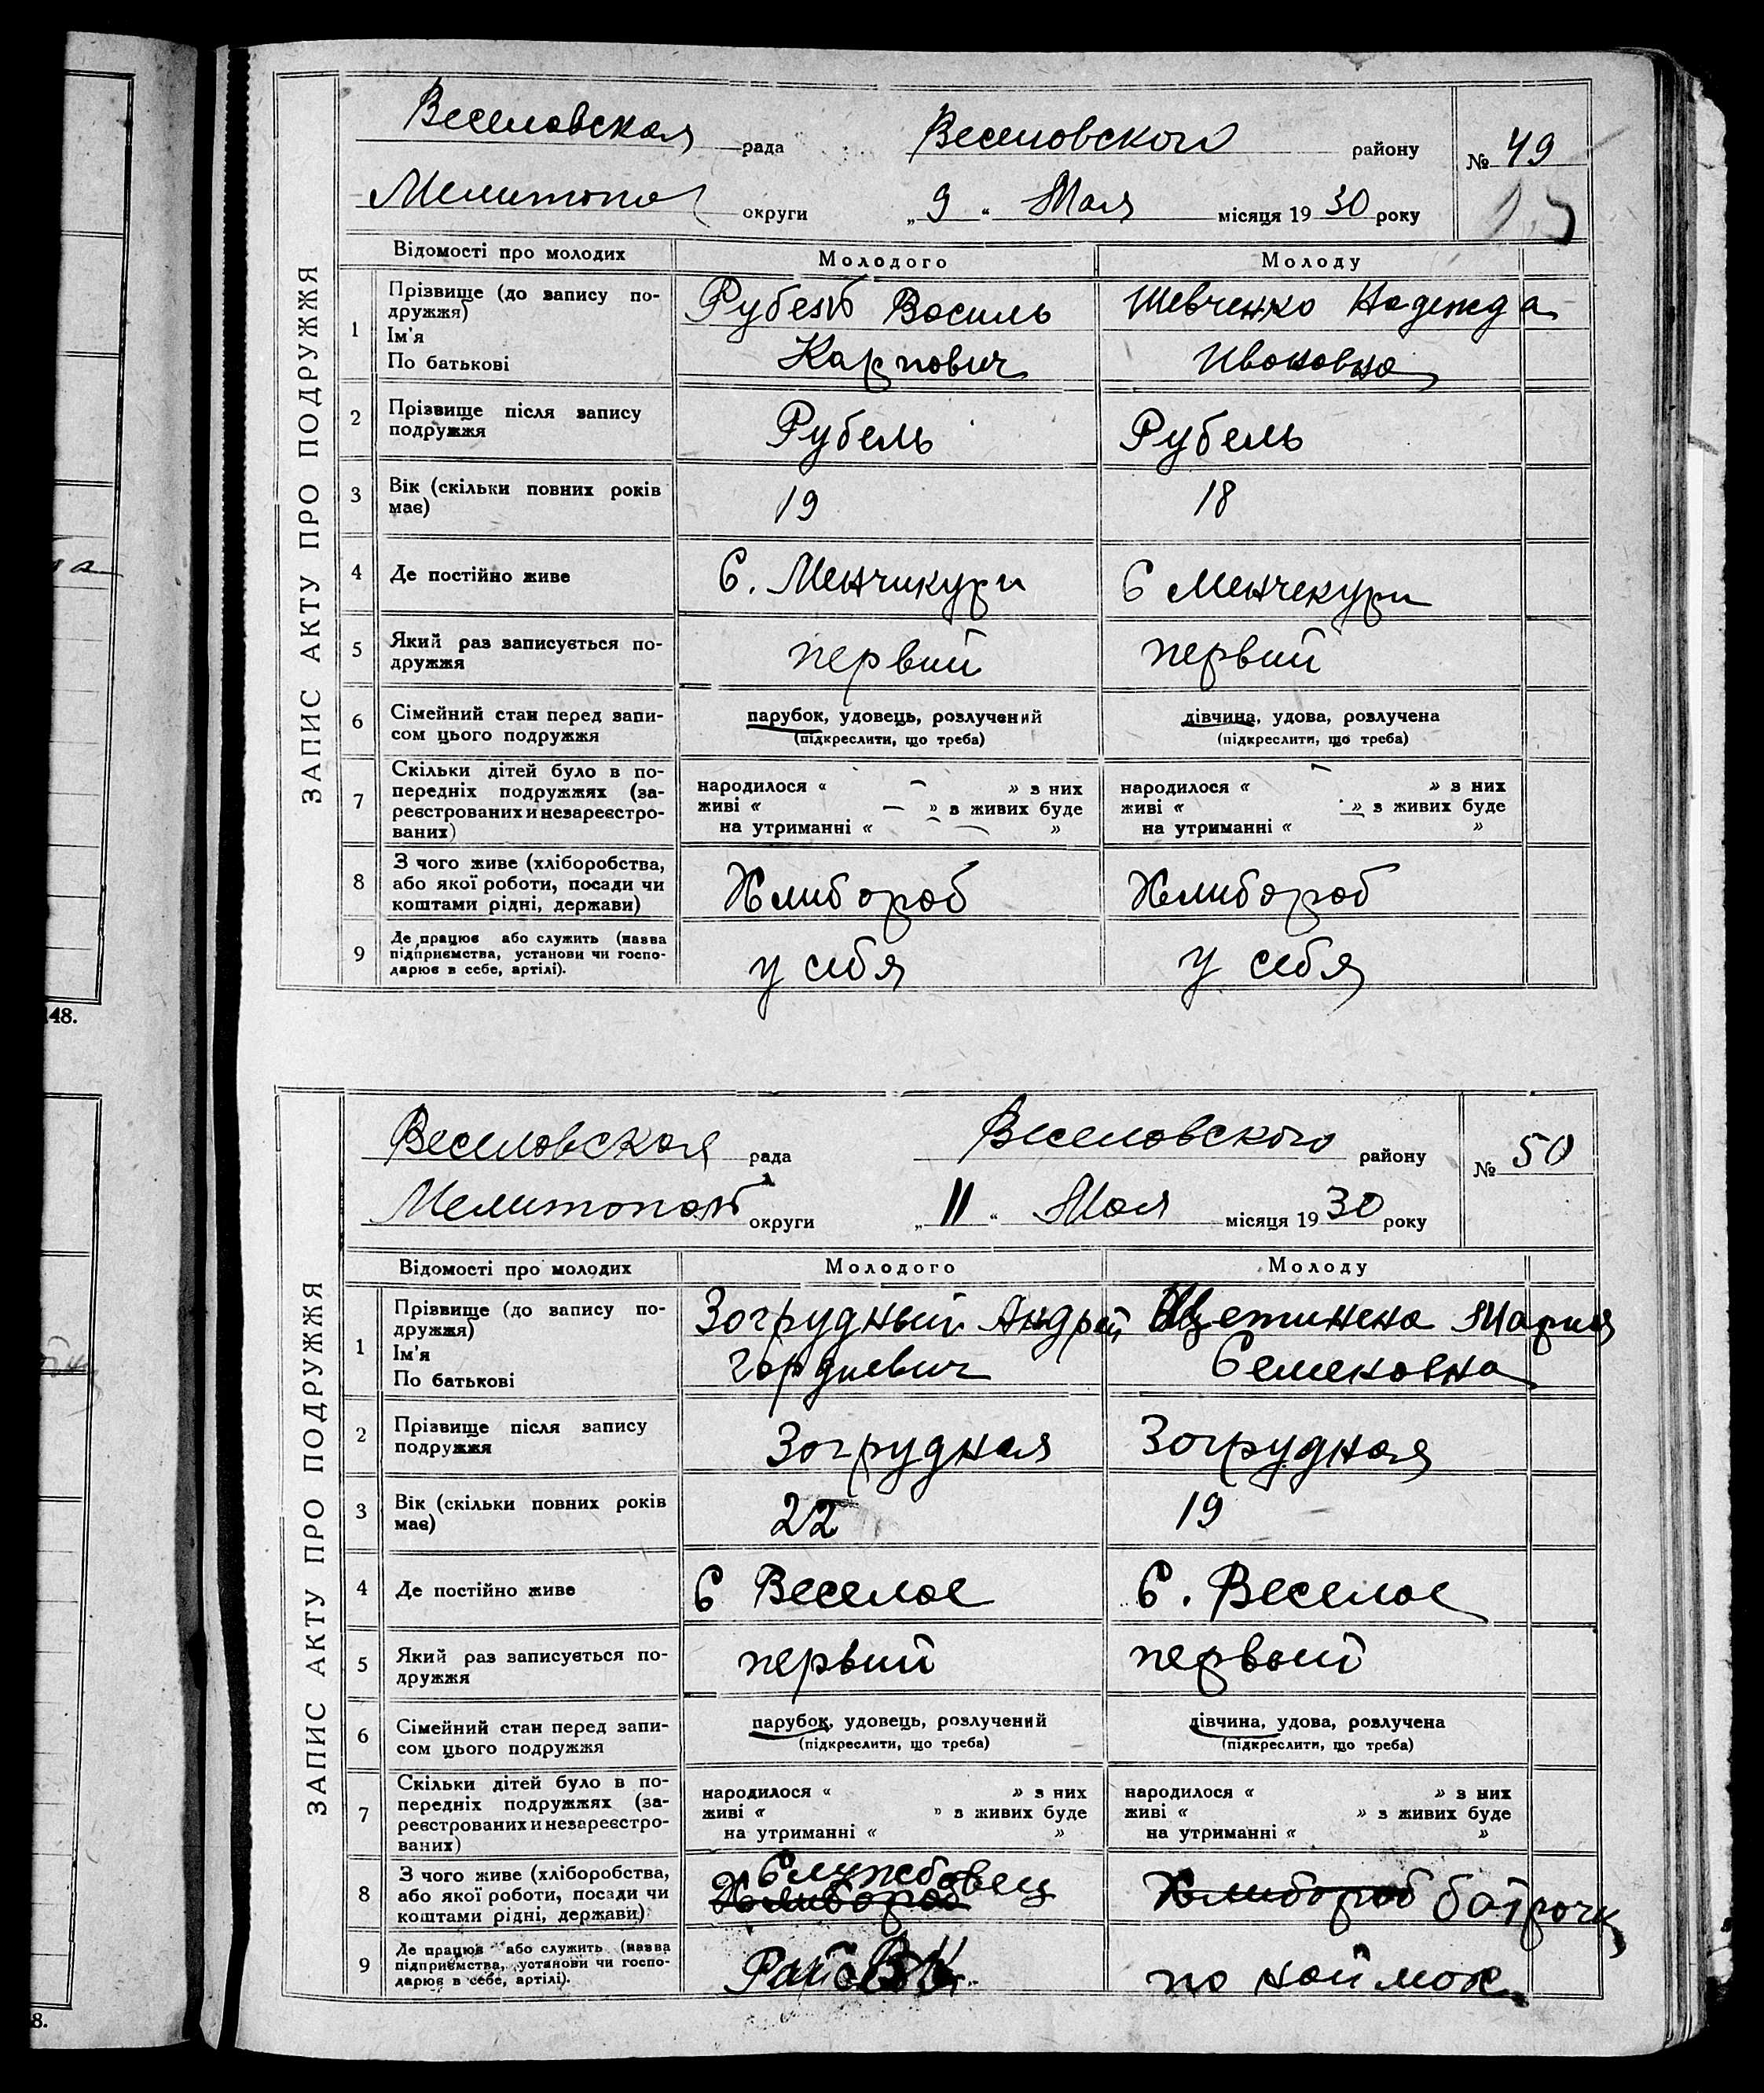 ЗАПИС АКТУ ПРО ПОДРУЖЖЯ
Веселовская рада Веселовского району № 49
Мелитопол округи „9“ Мая місяця 1930 року
Відомості про молодих Молодого Молоду
1 Прізвище (до запису по-
дружжя)
Ім'я
По батькові
Рубель Василь
Карпович
Шевченко Надежда
Ивановна
2 Прізвище після запису
подружжя
Рубель
Рубель
3 Вік (скільки повних років
має)
19
18
4 Де постійно живе
С. Менчикури
С Менчекури
5 Який раз записується по-
дружжя
первий
первий
6 Сімейний стан перед запи-
сом цього подружжя
парубок, удовець, розлучений
(підкреслити, що треба)
дівчина, удова, розлучена
(підкреслити, що треба)
7 Скільки дітей було в по-
передніх подружжях (за-
реєстрованих и незареєстро-
ваних)
народилося « — » з них
живі « — » з живих буде
на утриманні « — »
народилося « — » з них
живі « — » з живих буде
на утриманні « »
8 З чого живе (хліборобства,
або якої роботи, посади чи
коштами рідні, держави)
Хлибороб
Хлибороб
9 Де працює або служить (назва
підприємства, установи чи госпо-
дарює в себе, артілі).
у себя
у себя
48.
ЗАПИС АКТУ ПРО ПОДРУЖЖЯ
Веселовская рада Веселовского району № 50
Мелитопол округи „11“ Мая місяця 1930 року
Відомості про молодих Молодого Молоду
1 Прізвище (до запису по-
дружжя)
Ім'я
По батькові
Загрудный Андрей
Гордиевич
Щетинена Мария
Семеновна
2 Прізвище після запису
подружжя
Загрудная
Загрудная
3 Вік (скільки повних років
має)
22
19
4 Де постійно живе
С Веселое
С. Веселое
5 Який раз записується по-
дружжя
первий
первый
6 Сімейний стан перед запи-
сом цього подружжя
парубок, удовець, розлучений
(підкреслити, що треба)
дівчина, удова, розлучена
(підкреслити, що треба)
7 Скільки дітей було в по-
передніх подружжях (за-
реєстрованих и незареєстро-
ваних)
народилося « » з них
живі « » з живих буде
на утриманні « »
народилося « » з них
живі « » з живих буде
на утриманні « »
8 З чого живе (хліборобства,
або якої роботи, посади чи
коштами рідні, держави)
Службовец
Хлибороб
Хлибороб батрочк
9 Де працює або служить (назва
підприємства, установи чи госпо-
дарює в себе, артілі).
по наймох
8.